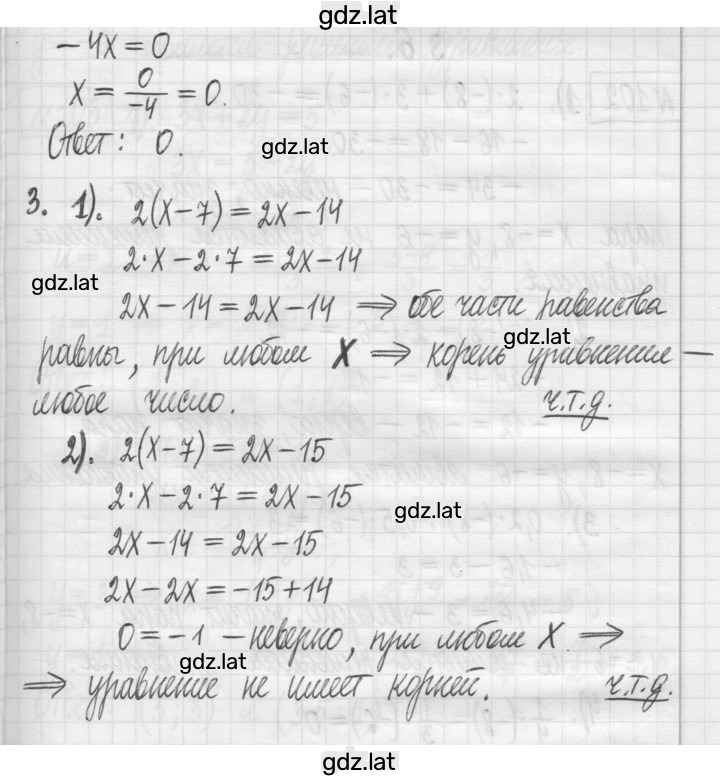 gdz.lat
−4x = 0
x = 0/−4 = 0.
Ответ: 0.
gdz.lat
3. 1). 2(x−7) = 2x−14
2·x−2·7 = 2x−14
gdz.lat
2x−14 = 2x−14 ⇒ обе части равенства
gdz.lat
равны, при любом x ⇒ корень уравнения —
любое число. ч.т.д.
2). 2(x−7) = 2x−15
2·x−2·7 = 2x−15
gdz.lat
2x−14 = 2x−15
2x−2x = −15+14
0 = −1 − неверно, при любом x ⇒
gdz.lat
⇒ уравнение не имеет корней. ч.т.д.
gdz.lat